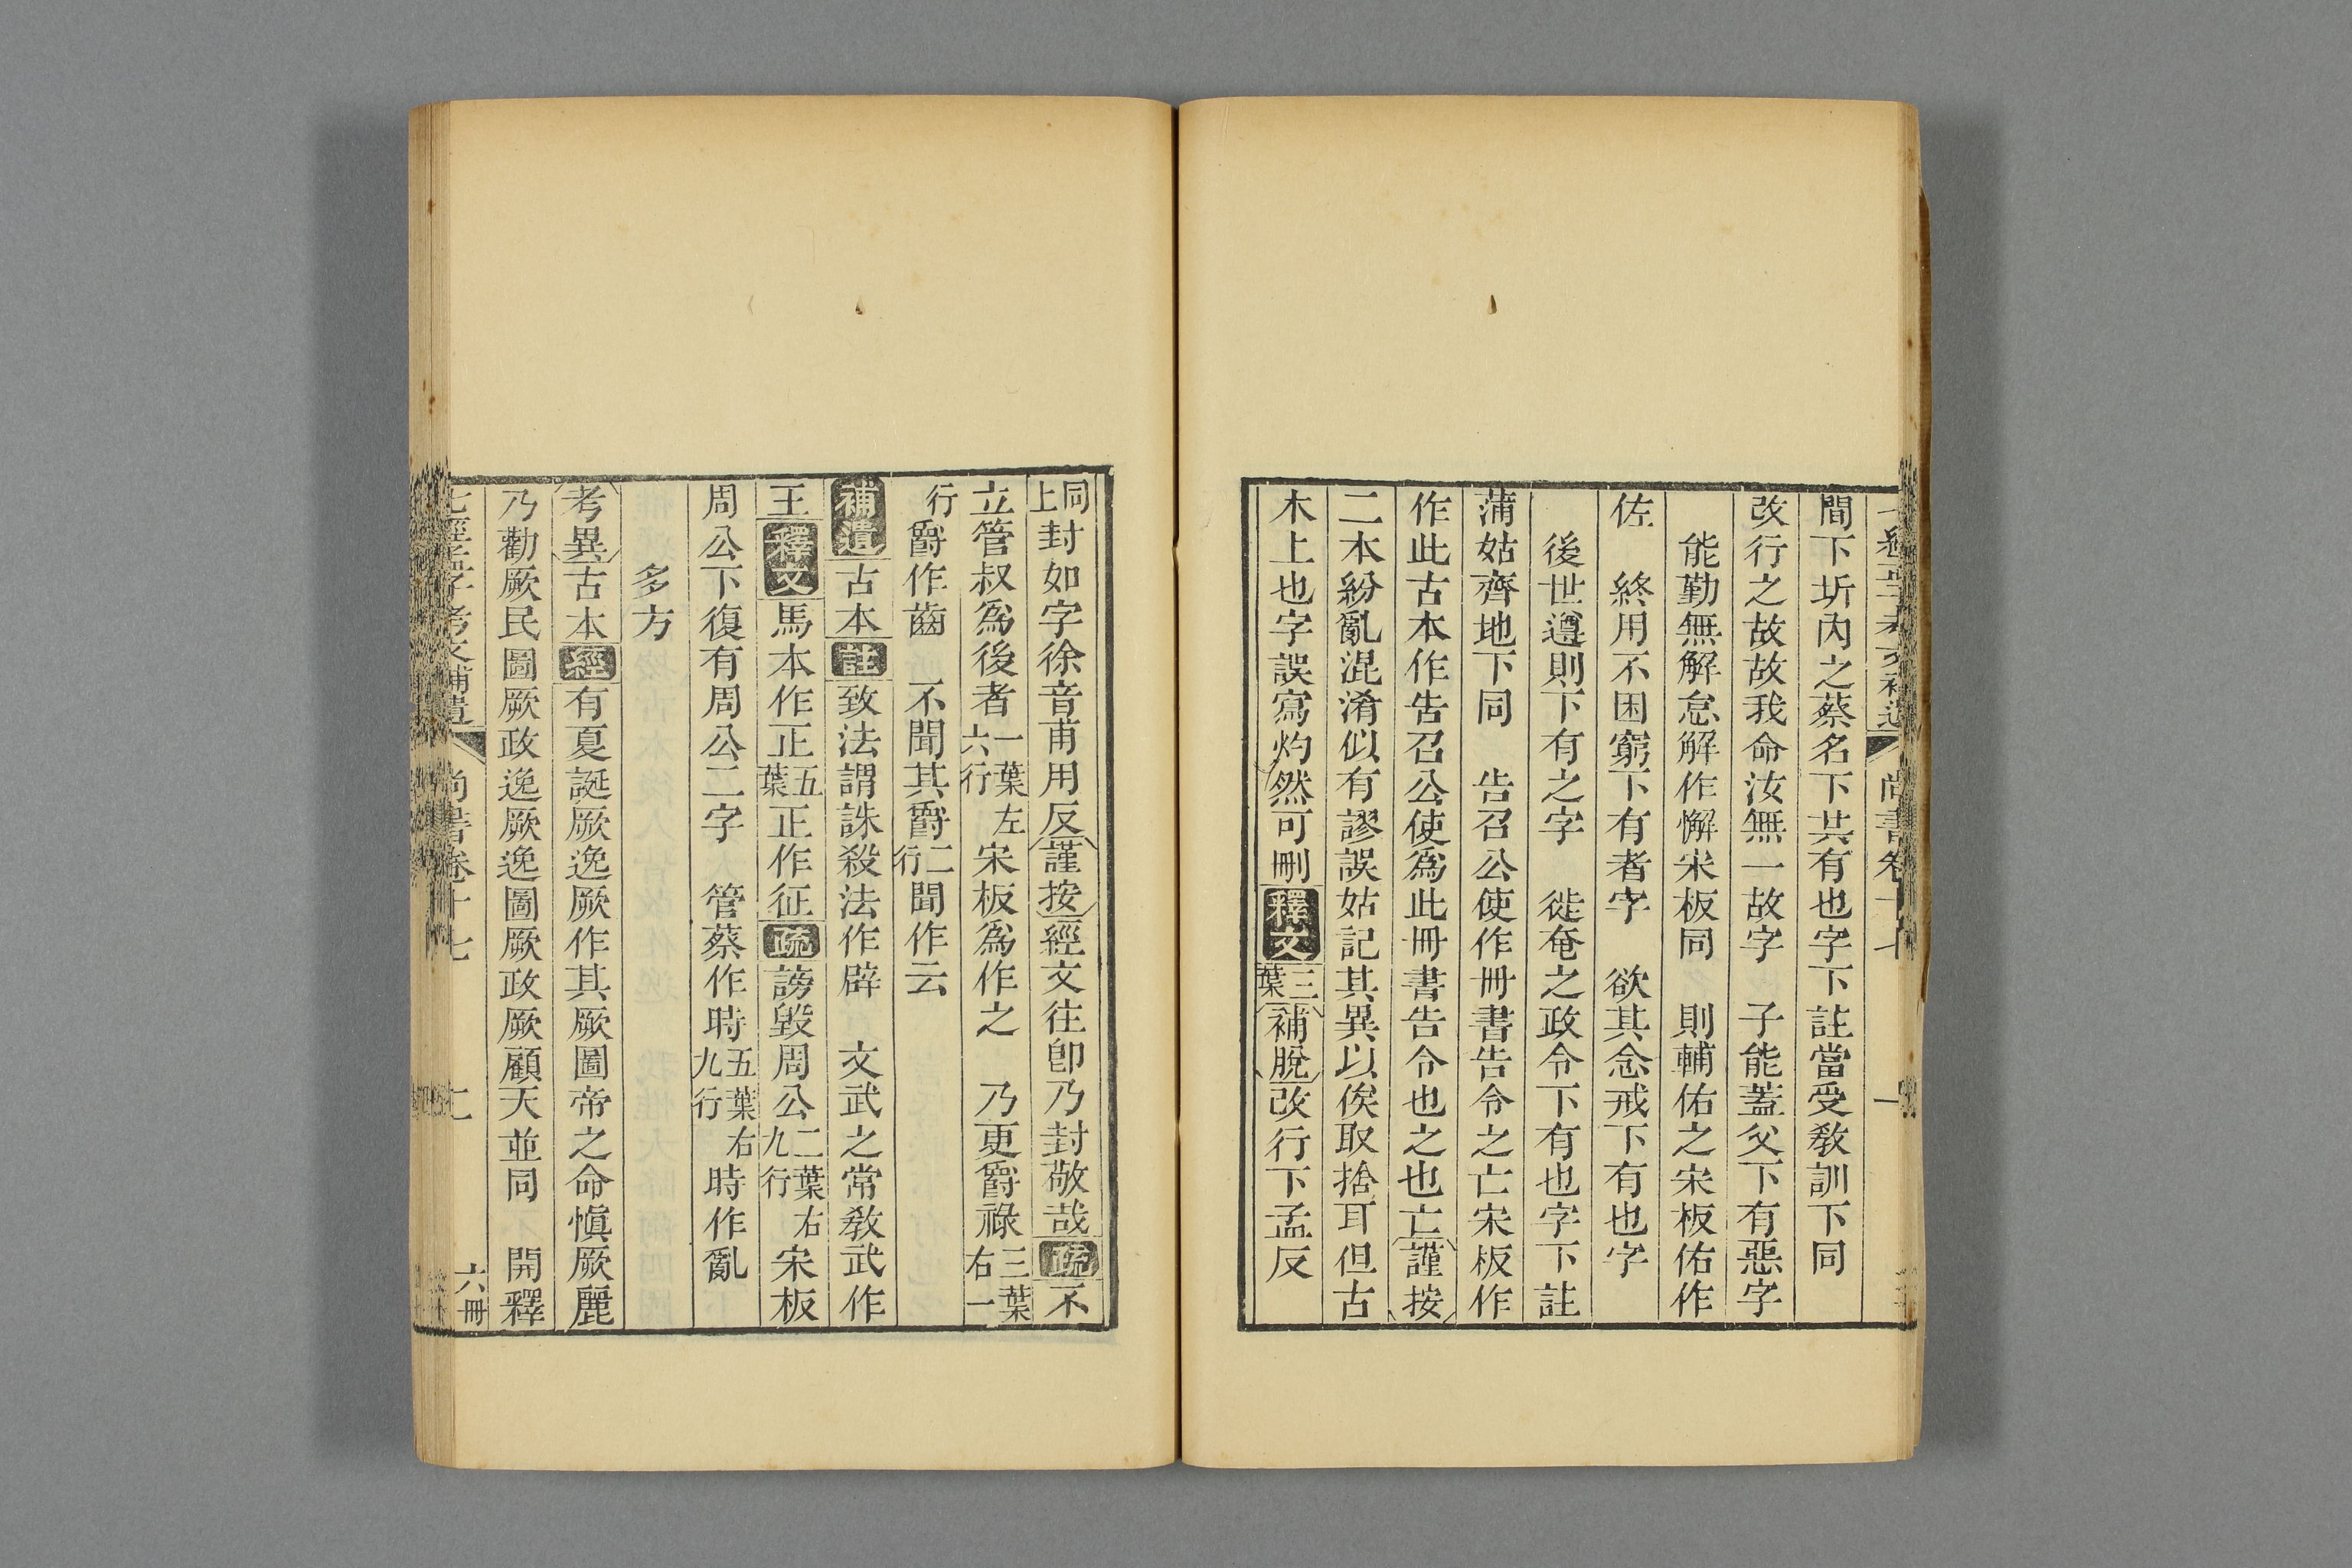 間下圻內之蔡名下共有也字下註當受敎訓下同
改行之故故我命汝無一故字　子能蓋父下有惡字
能勤無解怠解作懈宋板同　則輔佑之宋板佑作
佐　終用不困窮下有者字　欲其念戒下有也字
後世遵則下有之字　徙奄之政令下有也字下註
蒲姑齊地下同　告召公使作冊書告令之亡宋板作
作此古本作告召公使爲此冊書告令也之也亡謹按
二本紛亂混淆似有謬誤姑記其異以俟取捨耳但古
木上也字誤寫灼然可刪釋文三葉補脫改行下孟反
同上封如字徐音甫用反謹按經文往卽乃封敬哉疏不
立管叔爲後者一葉左六行宋板爲作之　乃更爵祿三葉右一
行爵作齒　不聞其爵二行聞作云
補遺古本註致法謂誅殺法作辟　文武之常敎武作
王釋文馬本作正五葉正作征疏謗毀周公二葉右九行宋板
周公下復有周公二字　管蔡作時五葉右九行時作亂
多方
考異古本經有夏誕厥逸厥作其厥圖帝之命愼厥麗
乃勸厥民圖厥政逸厥逸圖厥政厥顧天並同　開釋
七經孟子考文補遺　尚書卷十七　七　六冊